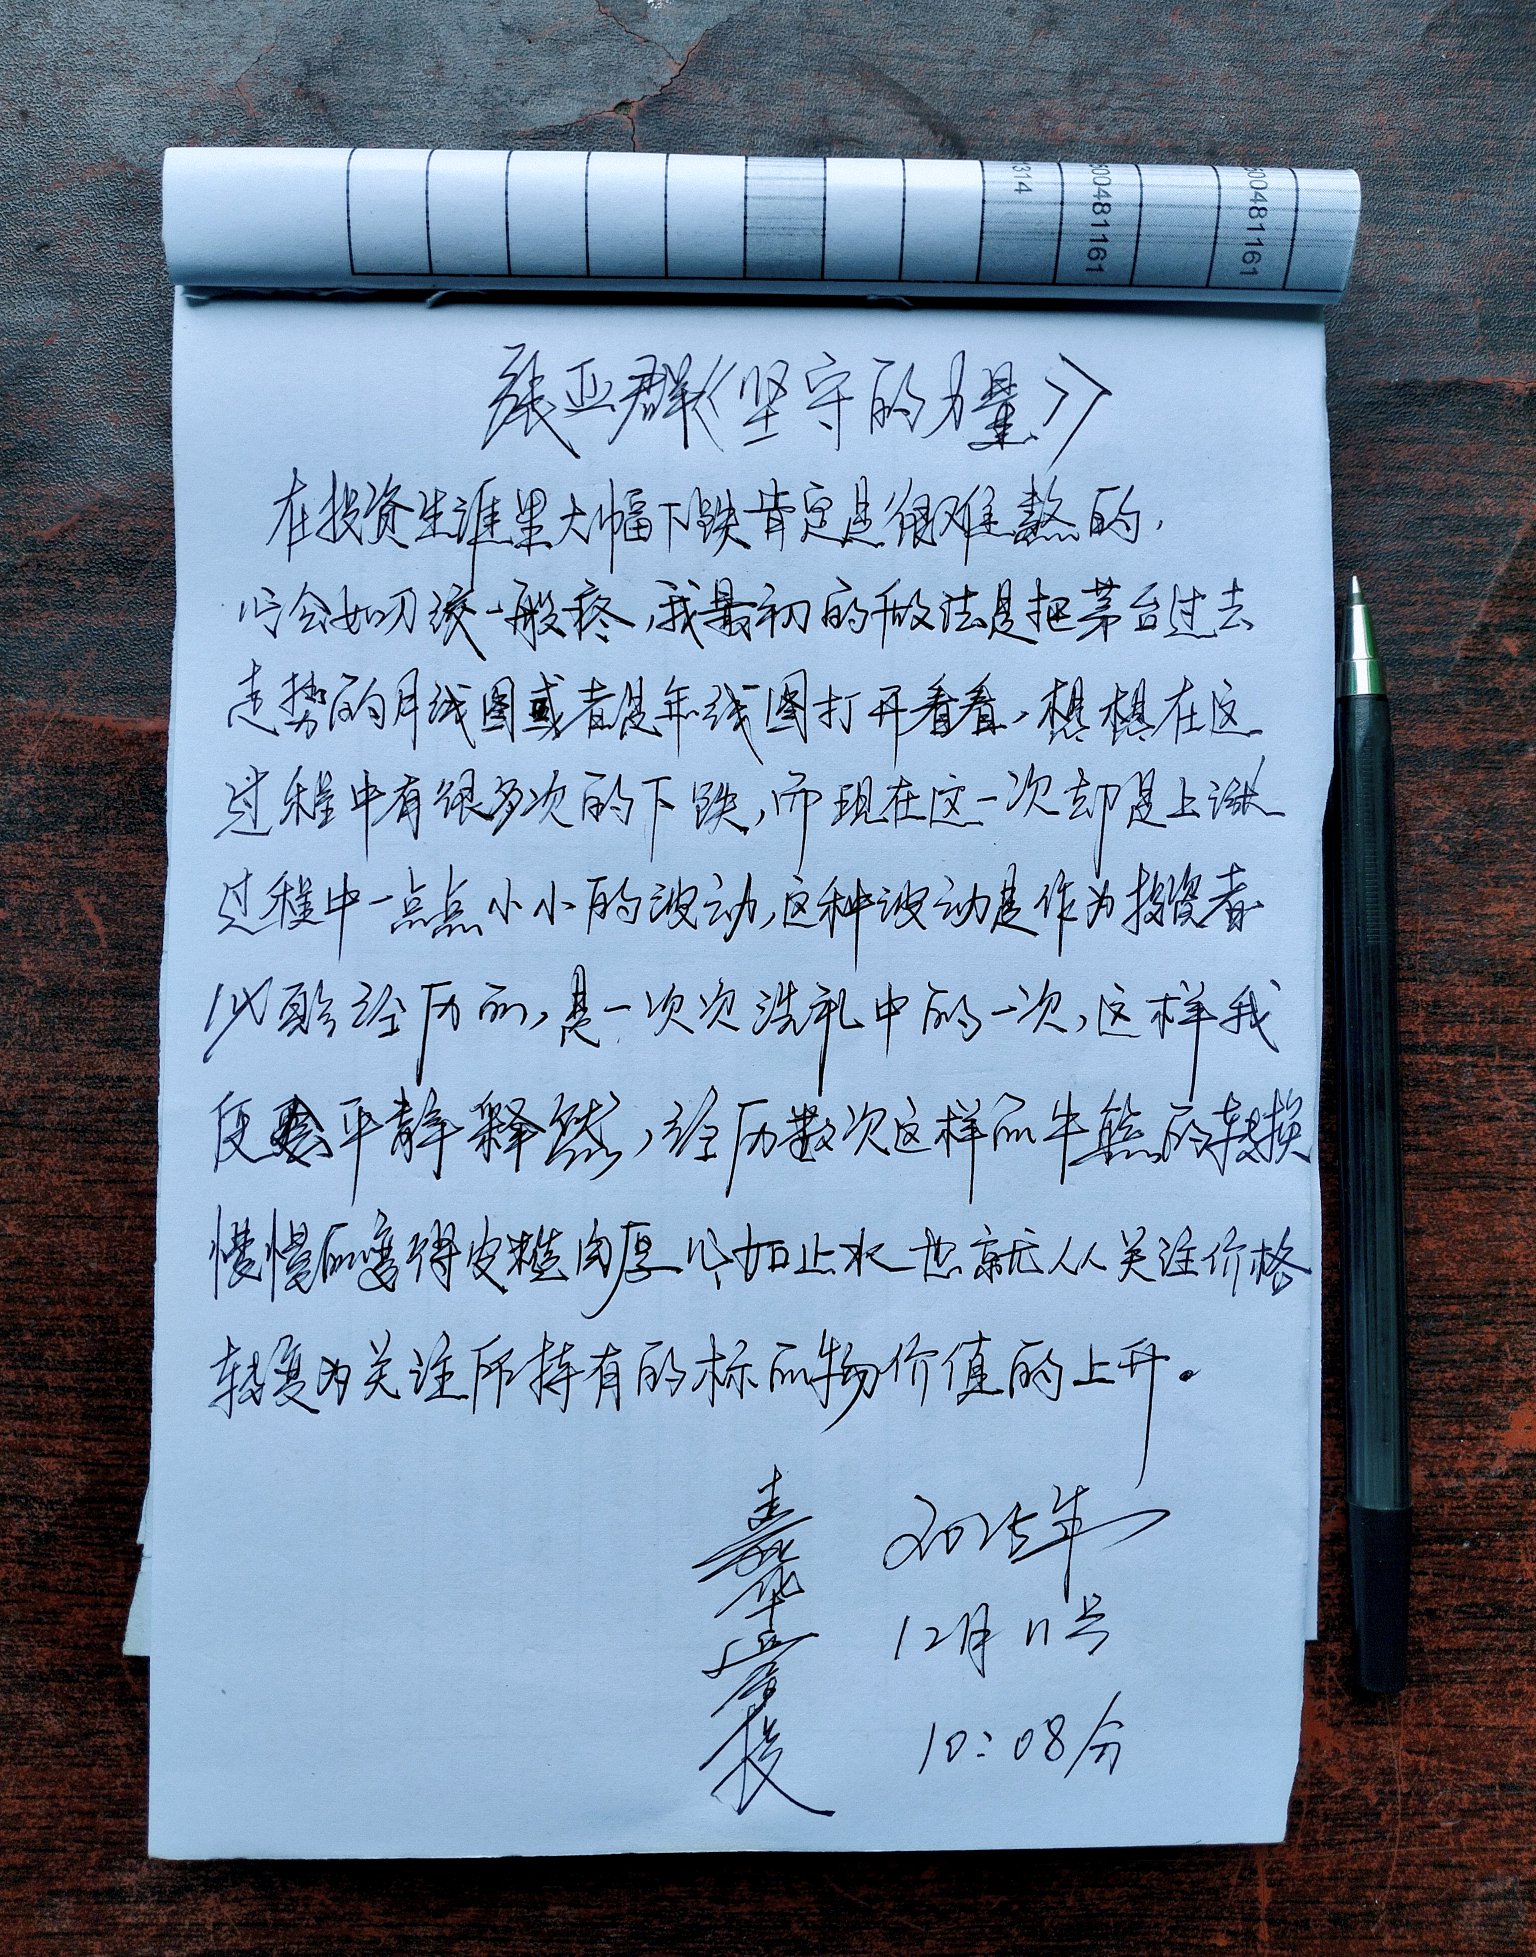 1314
600481161
600481161
张亚群《坚守的力量》
在投资生涯里大幅下跌肯定是很难熬的,
心会如刀绞一般疼,我最初的做法是把茅台过去
走势的月线图或者是年线图打开看看,想想在这
过程中有很多次的下跌,而现在这一次却是上涨
过程中一点点小小的波动,这种波动是作为投资者
必须经历的,是一次次洗礼中的一次,这样我
便会平静释然,经历数次这样的牛熊的转换
慢慢的变得皮糙肉厚心如止水也就从关注价格
转变为关注所持有的标的物价值的上升。
2025年
12月11号
10:08分